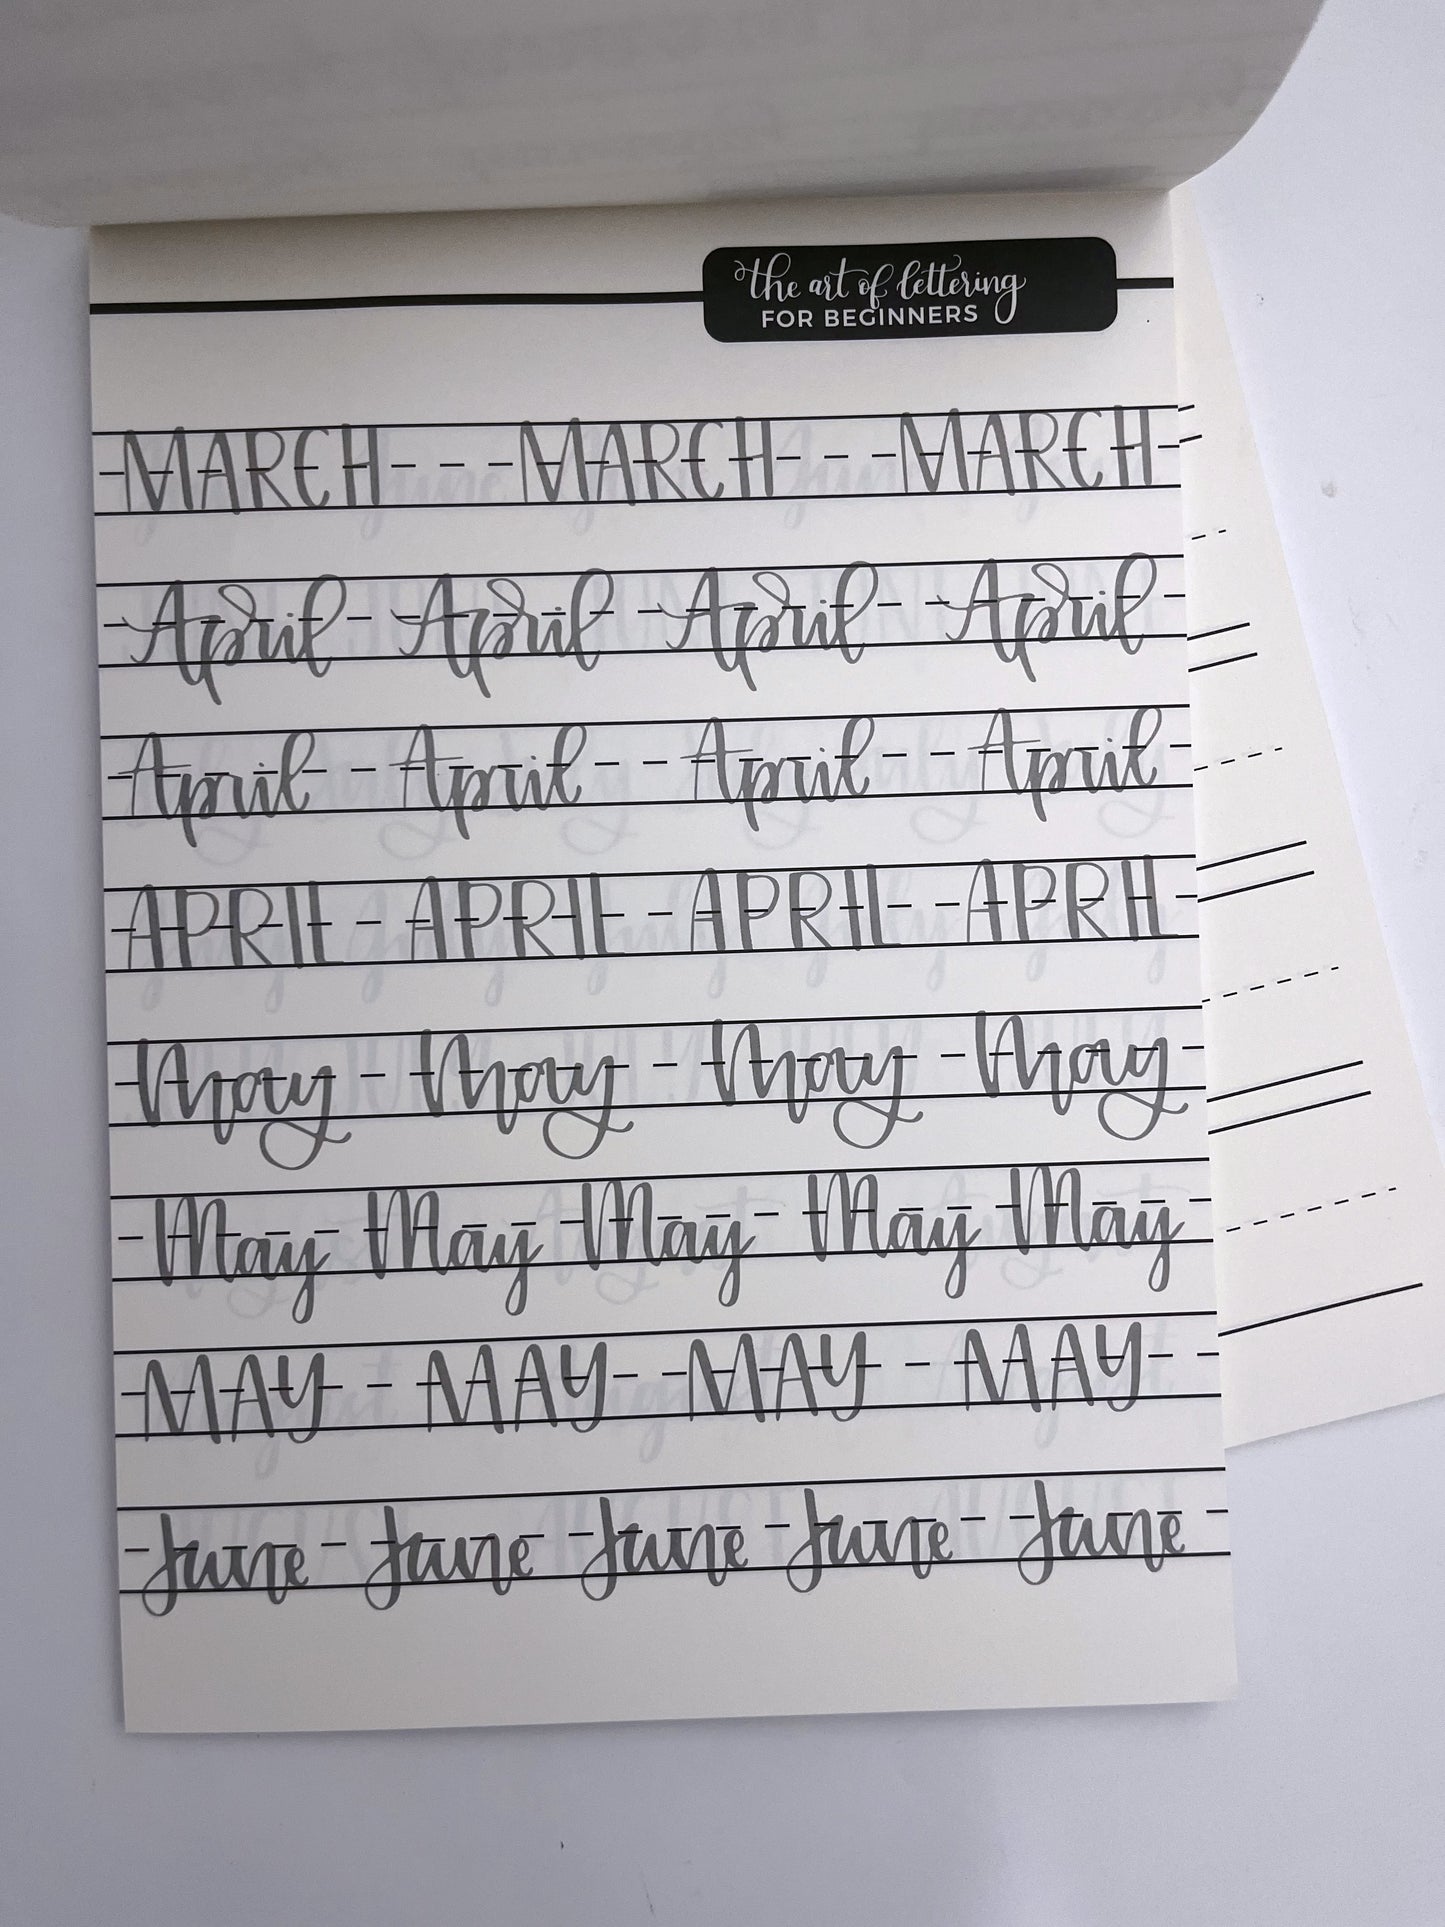 the art of lettering
FOR BEGINNERS
MARCH MARCH MARCH
April April April April
April April April April
APRIL APRIL APRIL APRIL
May May May May
May May May May May
MAY MAY MAY MAY
June June June June June